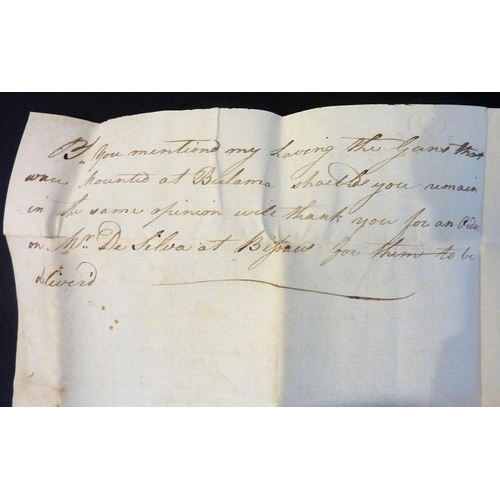 By. You mentiond my having the Guns that
ware Mounted at Bulama should you remain
in the same opinion will thank you for an Order
on Mr. De Silva at Bissaw for them to be
diliverd